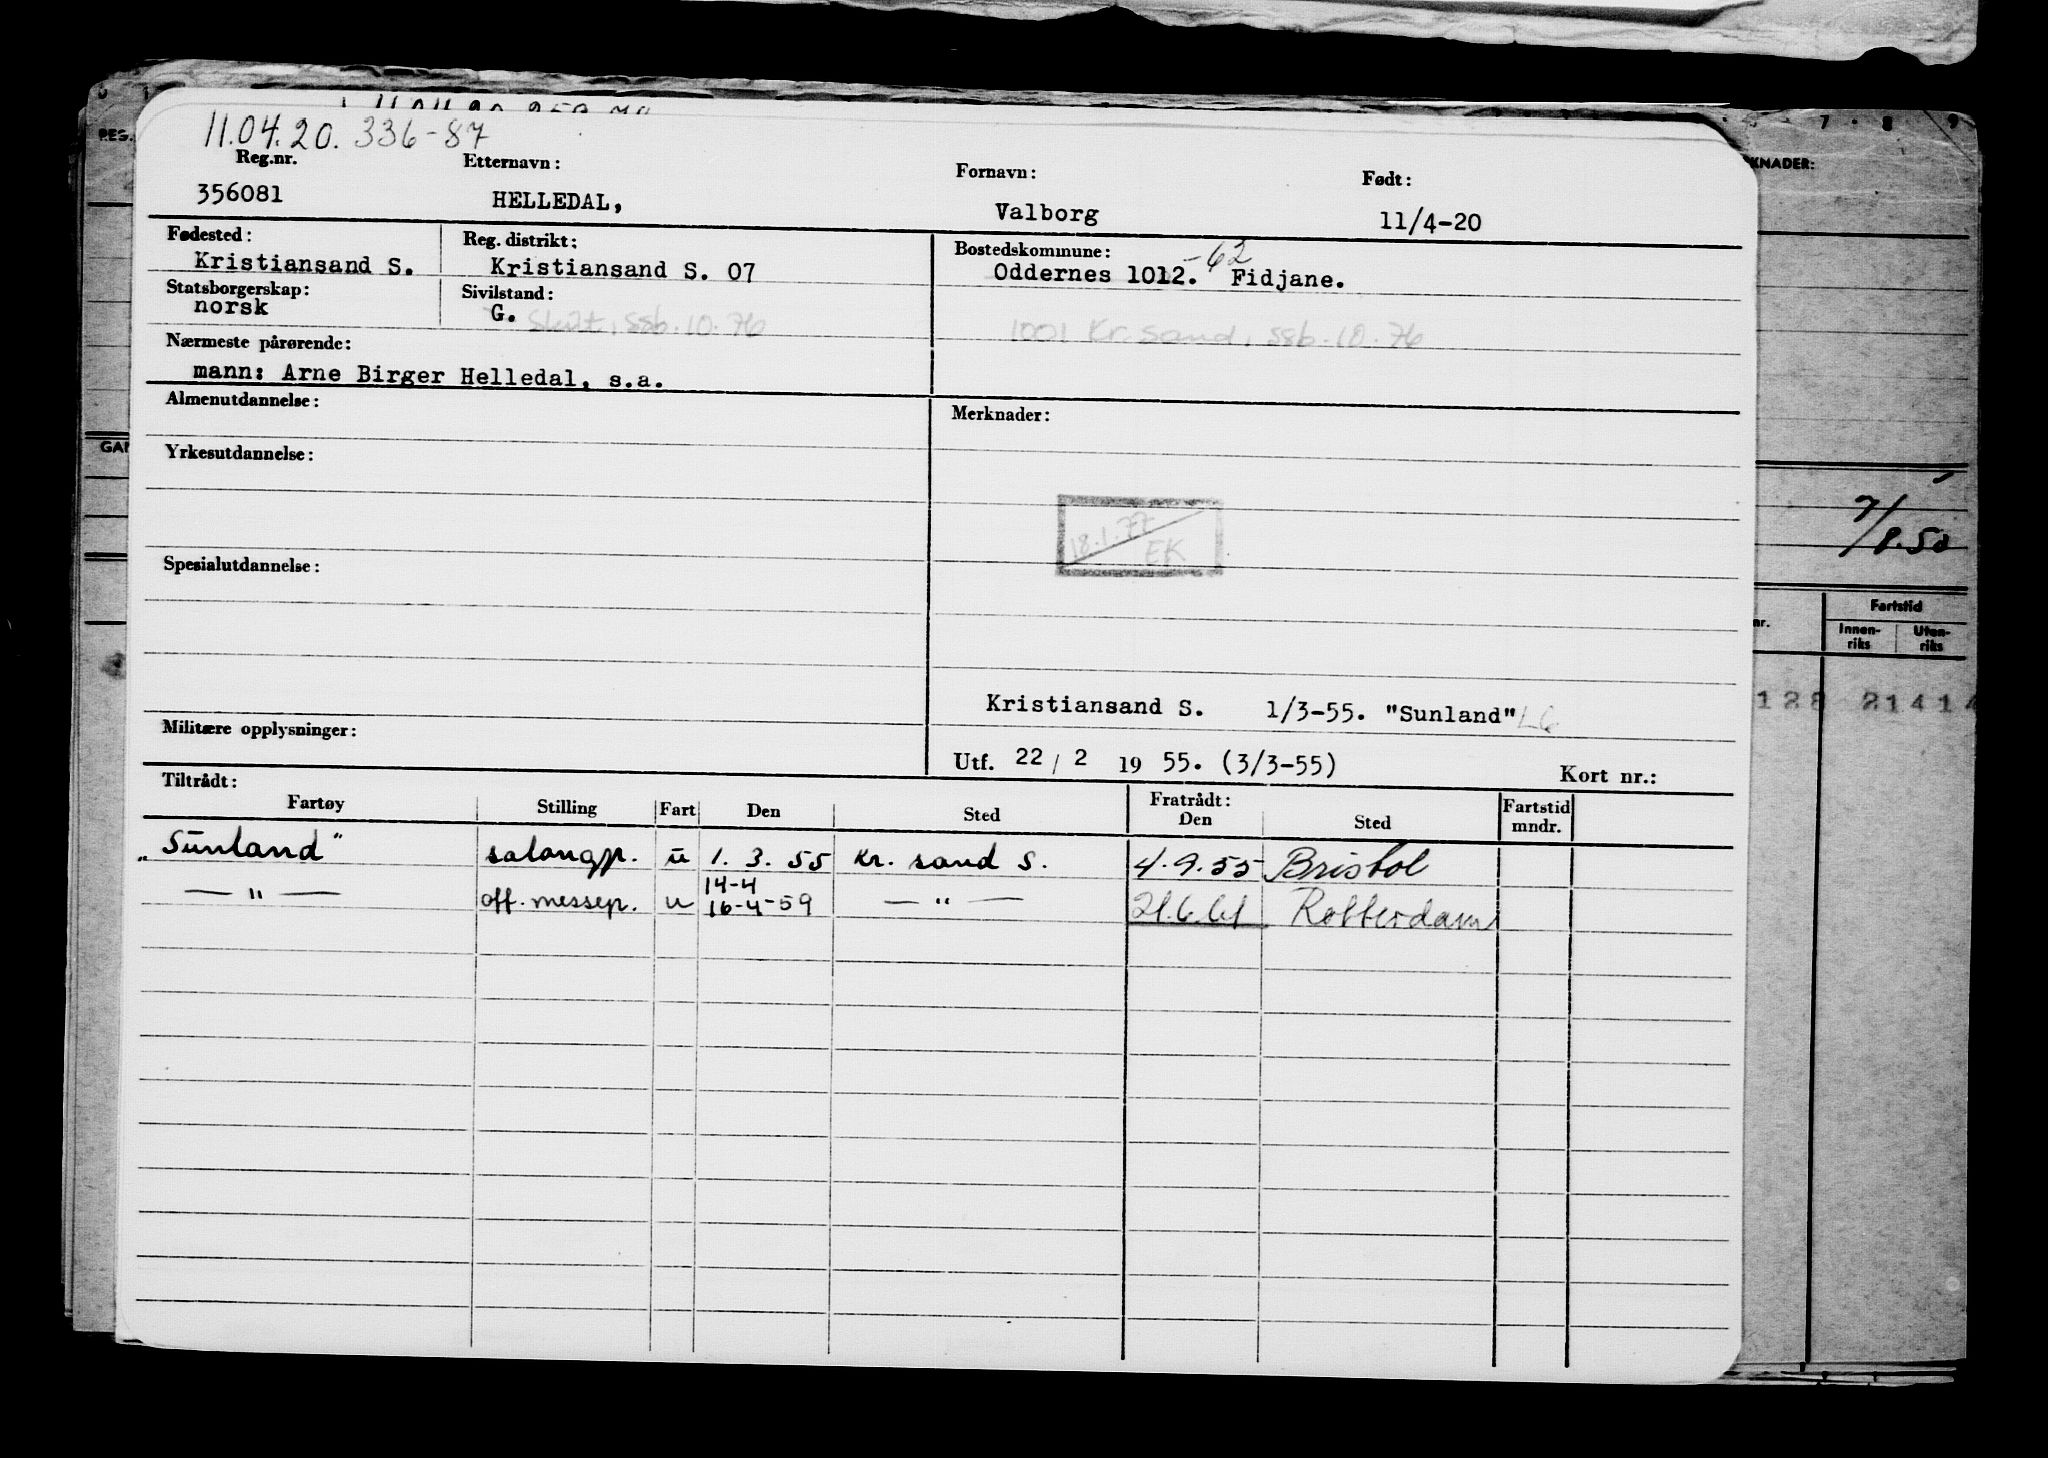 11.04.20. 336-87
Reg.nr. Etternavn: Fornavn: Født:
356081 HELLEDAL, Valborg 11/4-20
Fødested: Reg. distrikt: Bostedskommune: -62
Kristiansand S. Kristiansand S. 07 Oddernes 1012. Fidjane.
Statsborgerskap: Sivilstand:
norsk G. Skilt, ssb. 10.76 1001 Kr. sand, ssb. 10.76
Nærmeste pårørende:
mann: Arne Birger Helledal, s.a.
Almenutdannelse: Merknader:
Yrkesutdannelse:
18.1.77
EK
Spesialutdannelse:
Kristiansand S. 1/3-55. "Sunland" L6
Militære opplysninger:
Utf. 22 / 2 19 55. (3/3-55) Kort nr.:
Tiltrådt: Fratrådt:
Fartøy Stilling Fart Den Sted Den Sted Fartstid mndr.
„Sunland" salongp. u 1. 3. 55 Kr. sand S. 4.9.55 Bristol
14-4
— " — off. messep. u 16-4-59 — " — 21.6.61 Rotterdam
REG.
7 . 8 9
KNADER:
GAR
7/8.50
nr. Fartstid
Innen-riks Uten-riks
128 21414